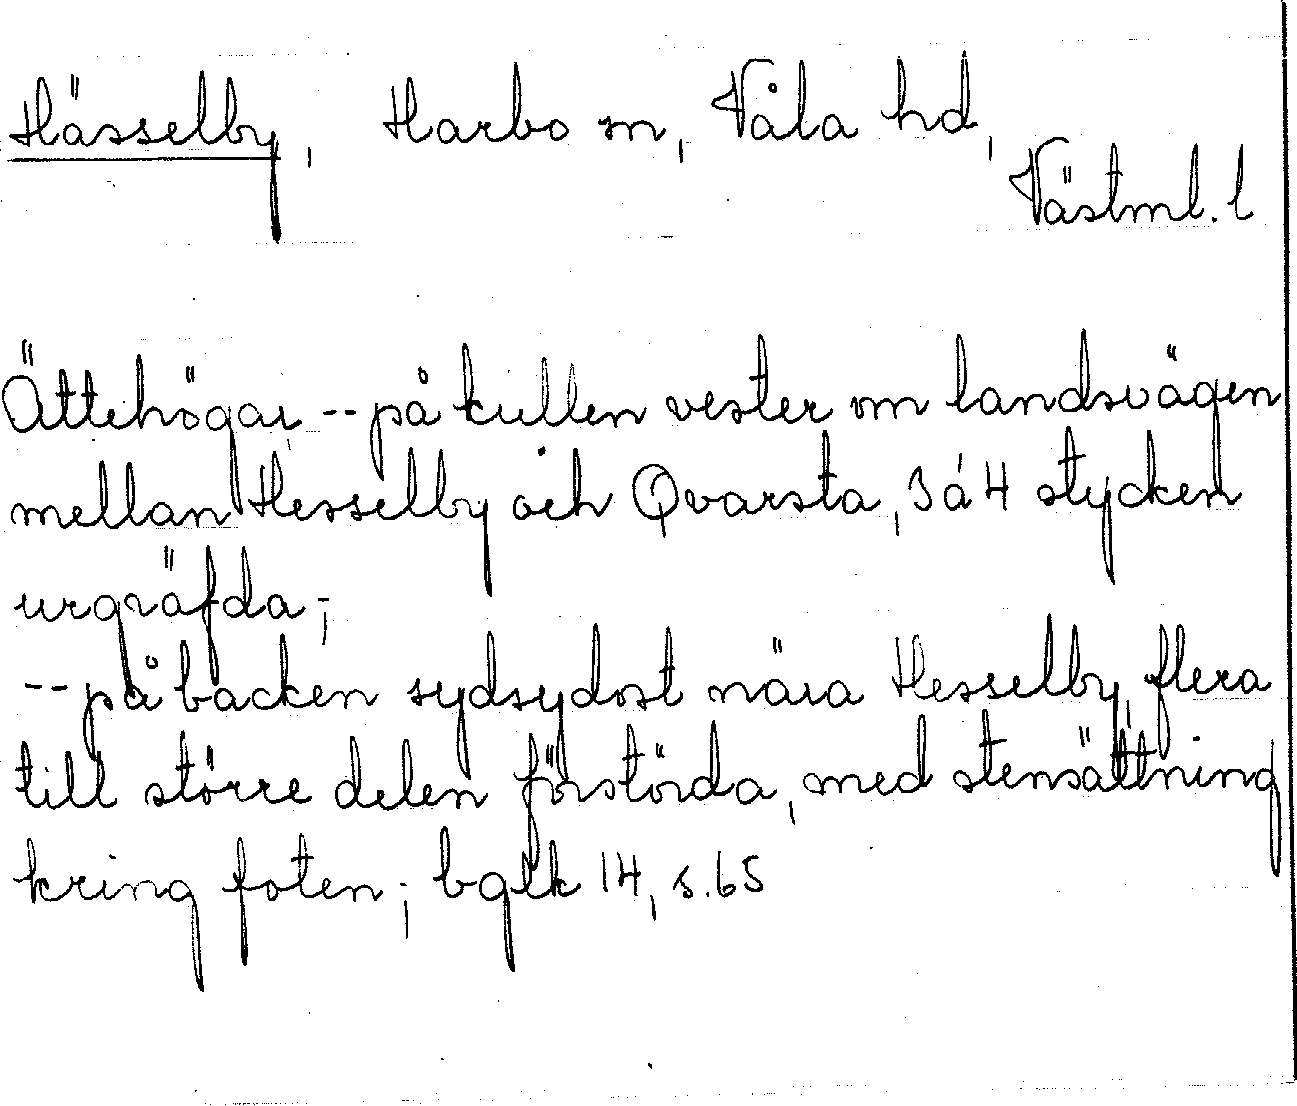 Hässelby, Harbo sn, Våla hd,
Västml. l
Ättehögar -- på kullen vester om landsvägen
mellan Hesselby och Qvarsta, 3 à 4 stycken
urgräfda;
-- på backen sydsydost nära Hesselby, flera
till större delen förstörda, med stensättning
kring foten; bglk 14, s. 65